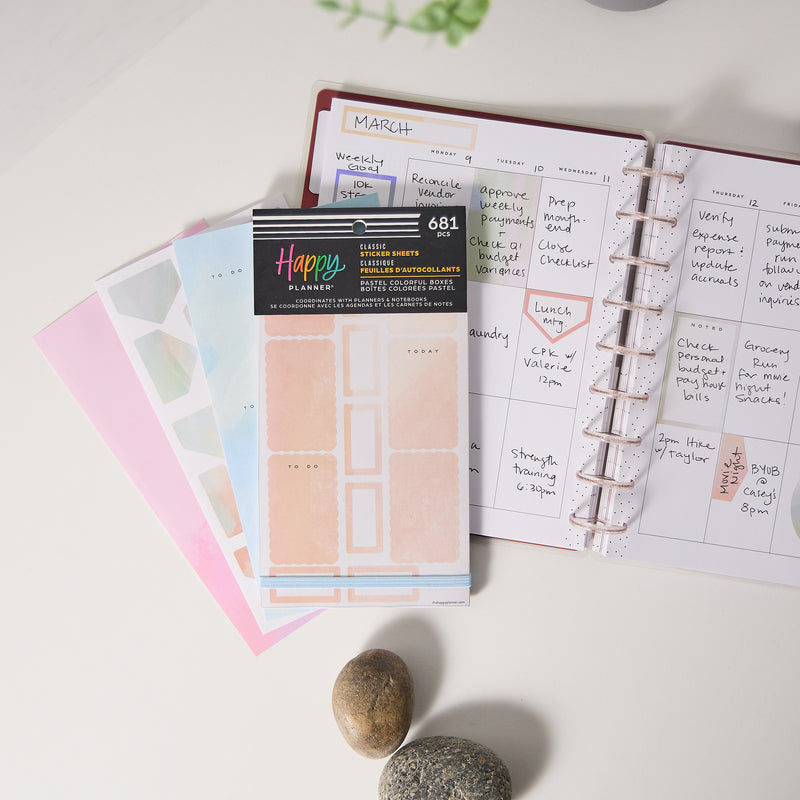 MARCH
Weekly
Goal
10K
MONDAY 9
TUESDAY 10
WEDNESDAY 11
Reconcile
vendor
approve
weekly
payments
+
Check Q1
budget
variances
Prep
month-
end
Close
Checklist
Lunch
mtg.
CPK w/
Valerie
12pm
Strength
training
6:30pm
THURSDAY 12
Verify
expense
report +
update
accruals
payment
run
follow
on vend
NOTED
Check
personal
budget +
pay house
bills
Grocery
Run
for movie
night
Snacks!
2pm Hike
w/ Taylor
Movie
Night
BYOB
@
Casey's
8pm
TO DO
681
pcs
Happy
PLANNER®
CLASSIC
STICKER SHEETS
CLASSIQUE
FEUILLES D'AUTOCOLLANTS
PASTEL COLORFUL BOXES
BOÎTES COLORÉES PASTEL
COORDINATES WITH PLANNERS & NOTEBOOKS
SE COORDONNE AVEC LES AGENDAS ET LES CARNETS DE NOTES
TODAY
TO DO
thehappyplanner.com